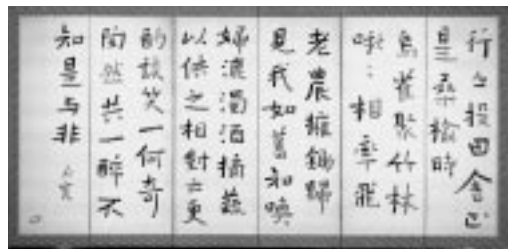 行々投田舎正
是桑楡時
鳥雀聚竹林
啾々相率飛
老農擁鋤歸
見我如舊知喚
婦漉濁酒摘蔬
以供之相對云更
酌談笑一何奇
陶然共一酔不
知是与非